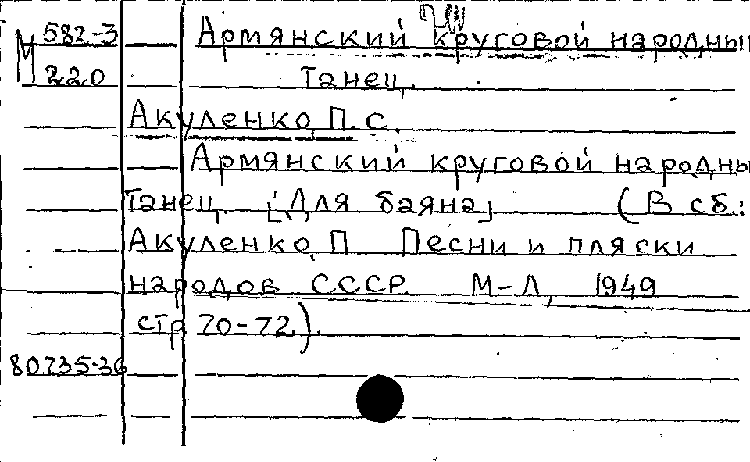 М 582-3 Армянский круговой народны
220 танец.
Акуленко, П. С.
Армянский круговой народны
танец. [Для баяна] (В сб.:
Акуленко, П. Песни и пляски
народов СССР. М-Л, 1949
стр 70-72).
80735-36